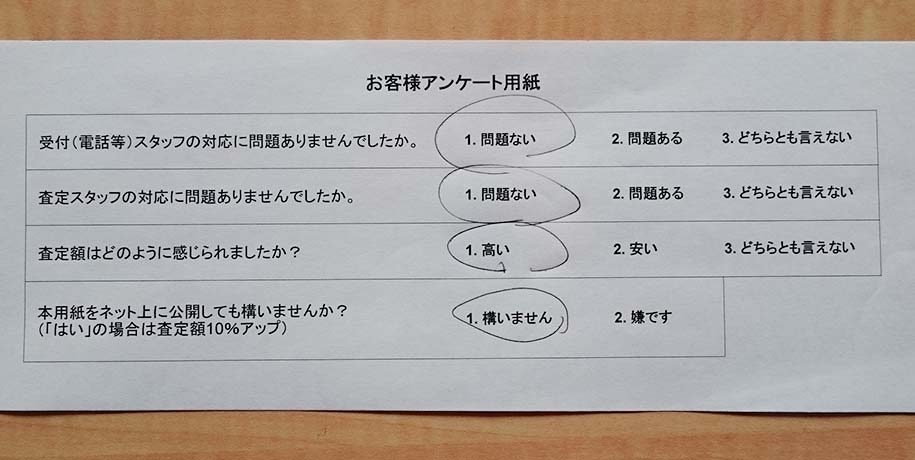 お客様アンケート用紙
受付(電話等)スタッフの対応に問題ありませんでしたか。 1. 問題ない 2. 問題ある 3. どちらとも言えない
査定スタッフの対応に問題ありませんでしたか。 1. 問題ない 2. 問題ある 3. どちらとも言えない
査定額はどのように感じられましたか? 1. 高い 2. 安い 3. どちらとも言えない
本用紙をネット上に公開しても構いませんか?
(「はい」の場合は査定額10%アップ) 1. 構いません 2. 嫌です